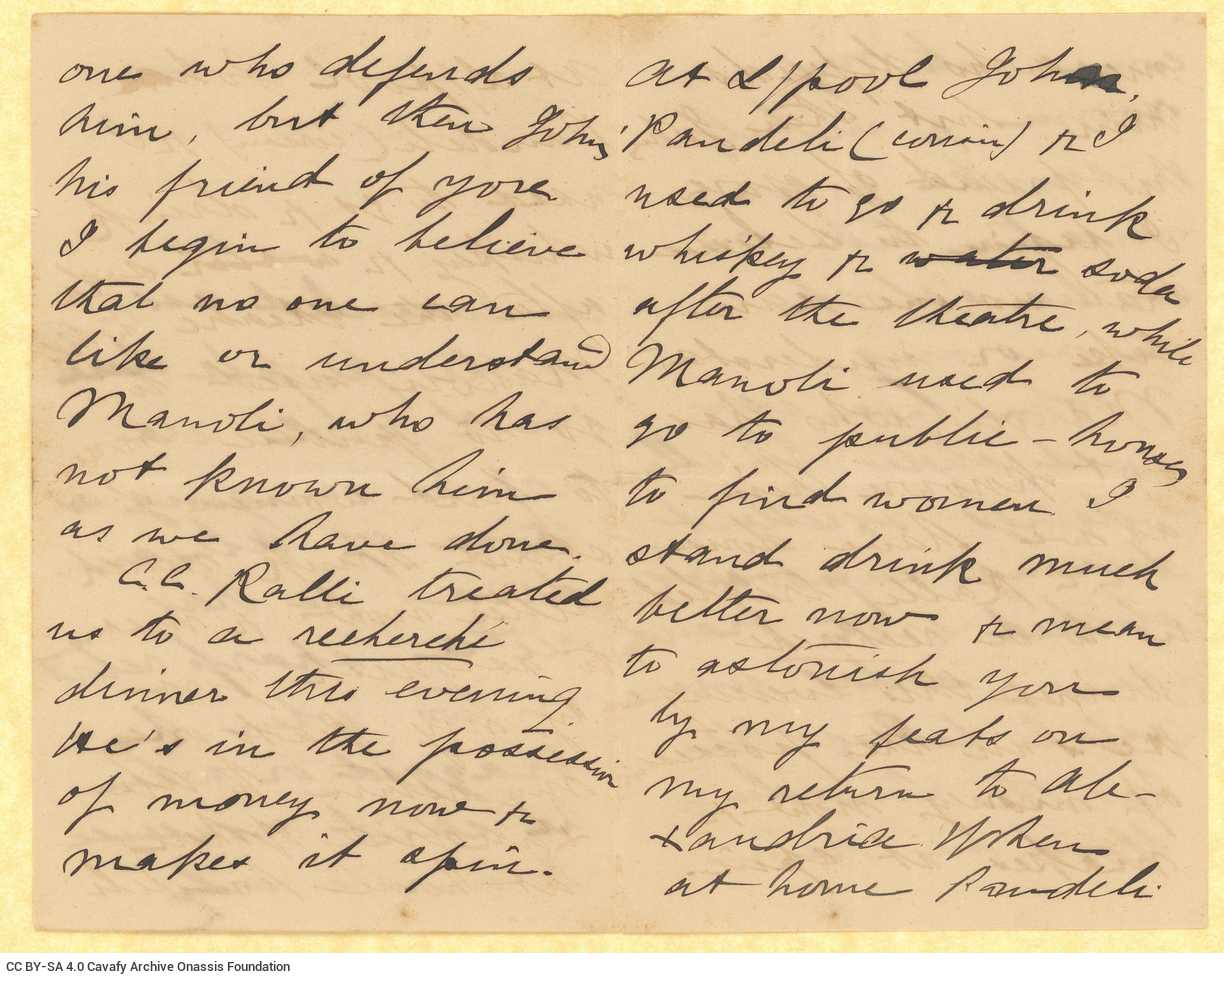 one who defends
him, but then John's
his friend of yore
I begin to believe
that no one can
like or understand
Manoli, who has
not known him
as we have done.
C.C. Ralli treated
us to a recherché
dinner this evening.
He's in the possession
of money now &
makes it spin.
at L/pool John,
Pandeli (cousin) & I
used to go & drink
whiskey & water soda
after the theatre, while
Manoli used to
go to public-houses
to find women. I
stand drink much
better now & mean
to astonish you
by my feats on
my return to Ale-
xandria. When
at home Pandeli
CC BY-SA 4.0 Cavafy Archive Onassis Foundation